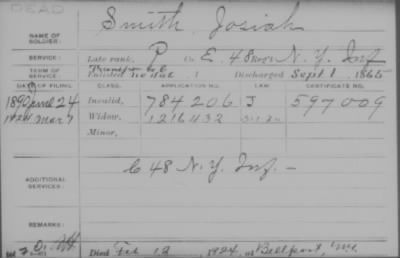 DEAD
Smith, Josiah
NAME OF SOLDIER:
SERVICE: Late rank, P Co. E, 48 Reg't N.Y. Inf
TERM OF SERVICE: Enlisted no date, 1 Discharged Sept 1, 1865
DATE OF FILING. CLASS. APPLICATION NO. LAW. CERTIFICATE NO.
1890 June 24 Invalid, 784206 J 597009
1924 Mar 7 Widow, 1216432
Minor,
ADDITIONAL SERVICES: C 48 N.Y. Inf. -
REMARKS:
Died Feb 12, 1924, at Bellport, N.Y.